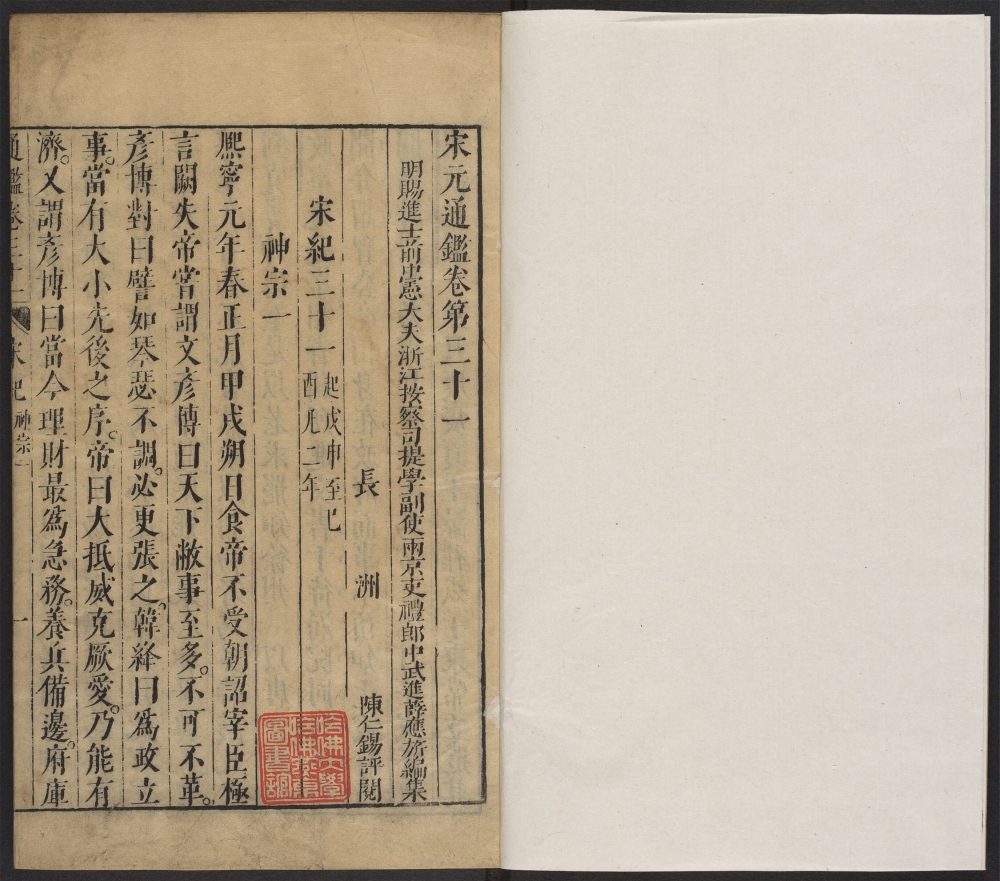 宋元通鑑卷第三十一
明賜進士前中憲大夫浙江按察司提學副使兩京吏禮郎中武進薛應旂編集
長洲 陳仁錫評閱
宋紀三十一 起戊申至己
酉凡二年
神宗一
熈寧元年春正月甲戌朔日食帝不受朝詔宰臣極
言闕失帝嘗謂文彥博曰天下敝事至多。不可不革。
彥博對曰譬如琴瑟不調。必更張之。韓絳曰爲政立
事。當有大小先後之序。帝曰大抵威克厥愛。乃能有
濟。又謂彥博曰當今理財最爲急務。養兵備邊。府庫
通鑑卷三十一 宋紀 神宗一 一
哈佛大學
哈佛燕京
圖書館